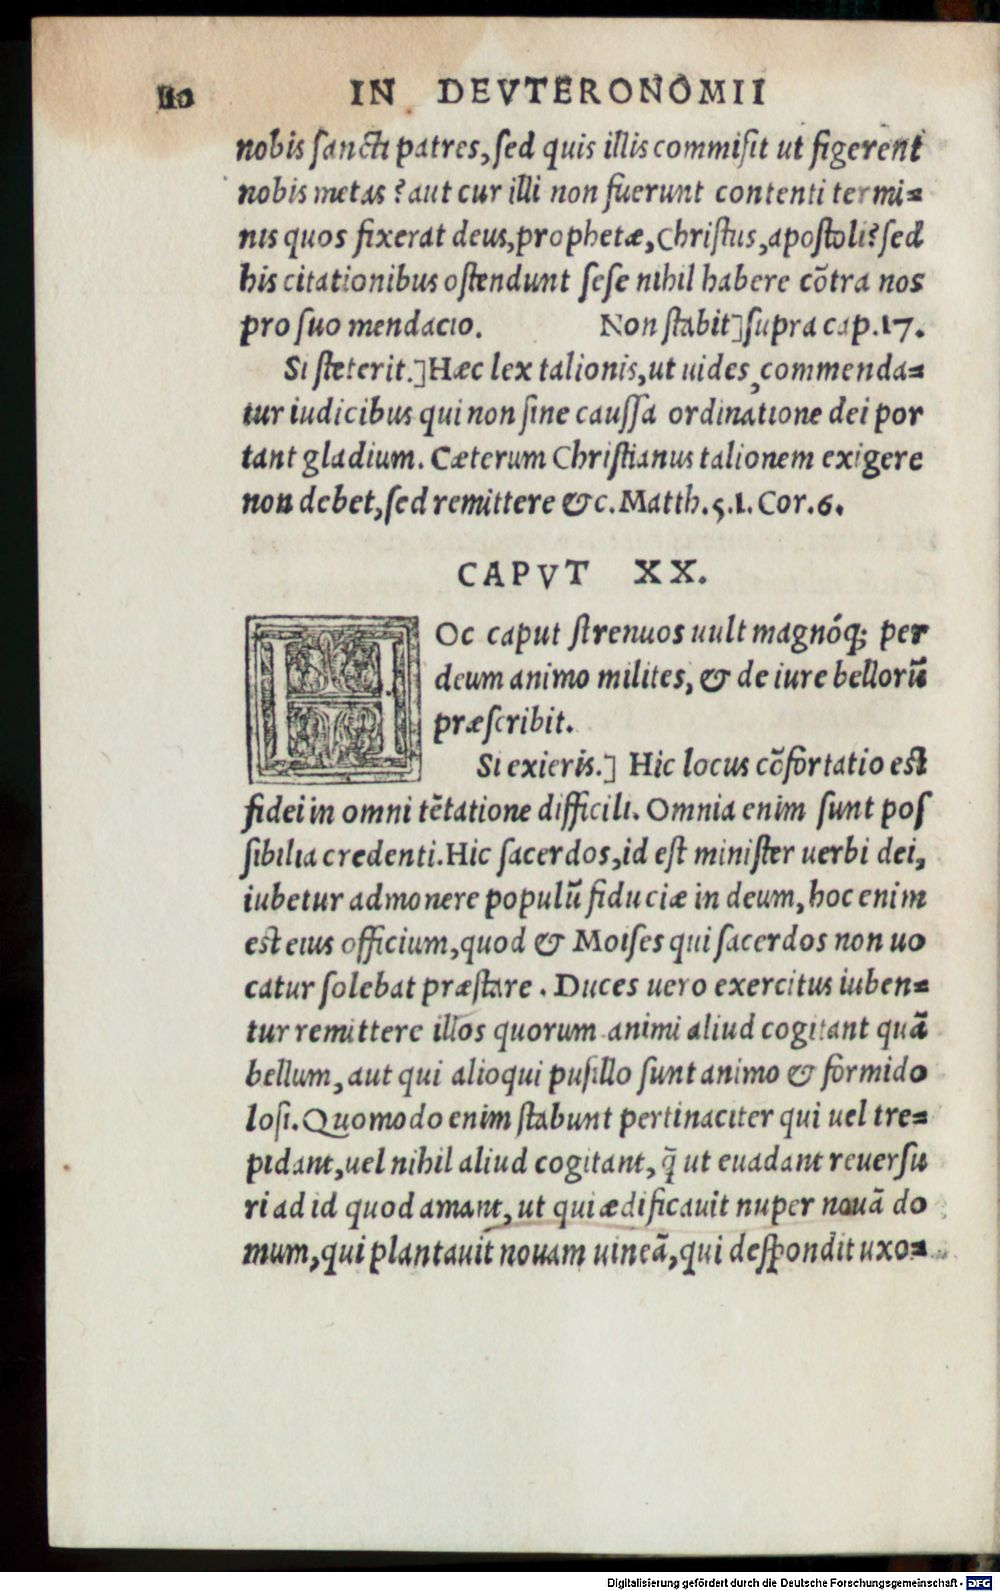 110 IN DEVTERONOMII
nobis ſancti patres, ſed quis illis commiſit ut figerent
nobis metas? aut cur illi non fuerunt contenti termi=
nis quos fixerat deus, prophetæ, Chriſtus, apoſtoli? ſed
his citationibus oſtendunt ſeſe nihil habere cõtra nos
pro ſuo mendacio. Non ſtabit] ſupra cap. 17.
Si ſteterit.] Hæc lex talionis, ut uides, commenda=
tur iudicibus qui non ſine cauſſa ordinatione dei por
tant gladium. Cæterum Chriſtianus talionem exigere
non debet, ſed remittere &c. Matth. 5. 1. Cor. 6.
CAPVT XX.
HOc caput ſtrenuos uult magnóq; per
deum animo milites, & de iure bellorũ
præſcribit.
Si exieris.] Hic locus cõfortatio eſt
fidei in omni tẽtatione difficili. Omnia enim ſunt poſ
ſibilia credenti. Hic ſacerdos, id eſt miniſter uerbi dei,
iubetur admonere populũ fiduciæ in deum, hoc enim
eſt eius officium, quod & Moiſes qui ſacerdos non uo
catur ſolebat præſtare. Duces uero exercitus iuben=
tur remittere illos quorum animi aliud cogitant quã
bellum, aut qui alioqui puſillo ſunt animo & formido
loſi. Quomodo enim ſtabunt pertinaciter qui uel tre=
pidant, uel nihil aliud cogitant, q̃ ut euadant reuerſu
ri ad id quod amant, ut qui ædificauit nuper nouã do
mum, qui plantauit nouam uineã, qui deſpondit uxo=
Digitalisierung gefördert durch die Deutsche Forschungsgemeinschaft - DFG